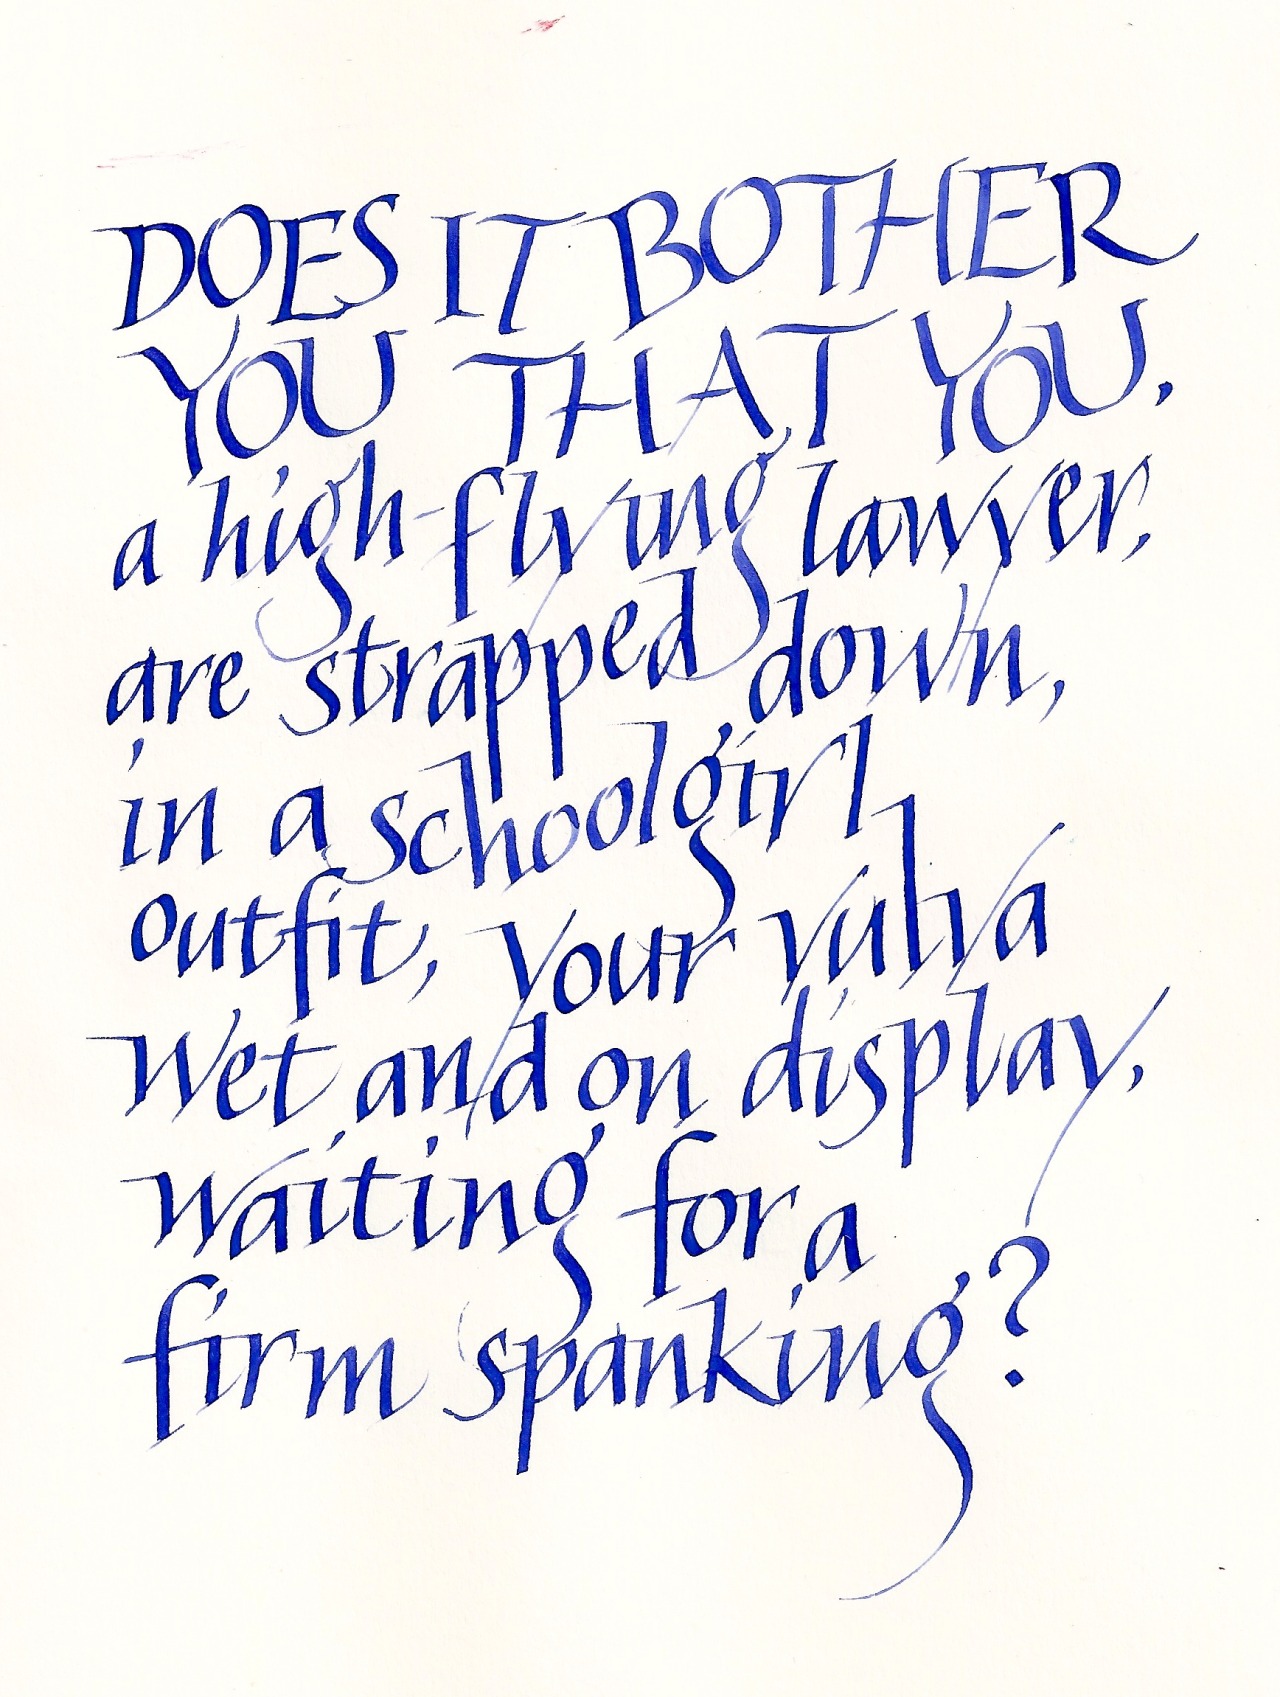 DOES IT BOTHER
YOU THAT YOU,
a high-flying lawyer,
are strapped down,
in a schoolgirl
outfit, your vulva
wet and on display,
waiting for a
firm spanking?